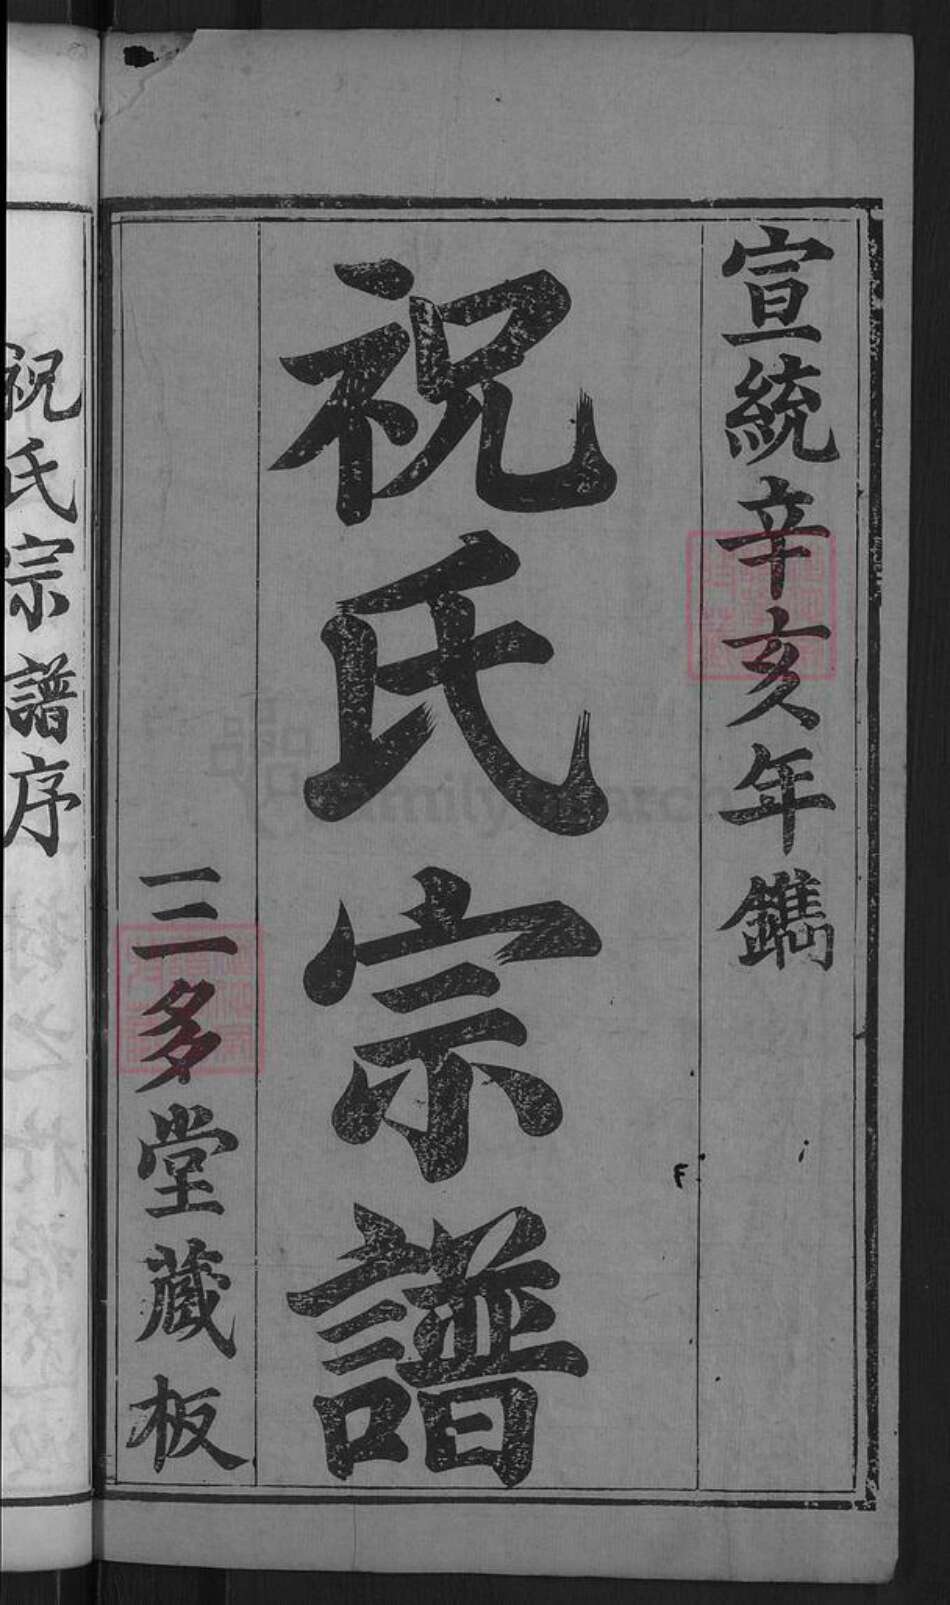 宣統辛亥年鐫
祝氏宗譜
三多堂藏板
祝氏宗譜序